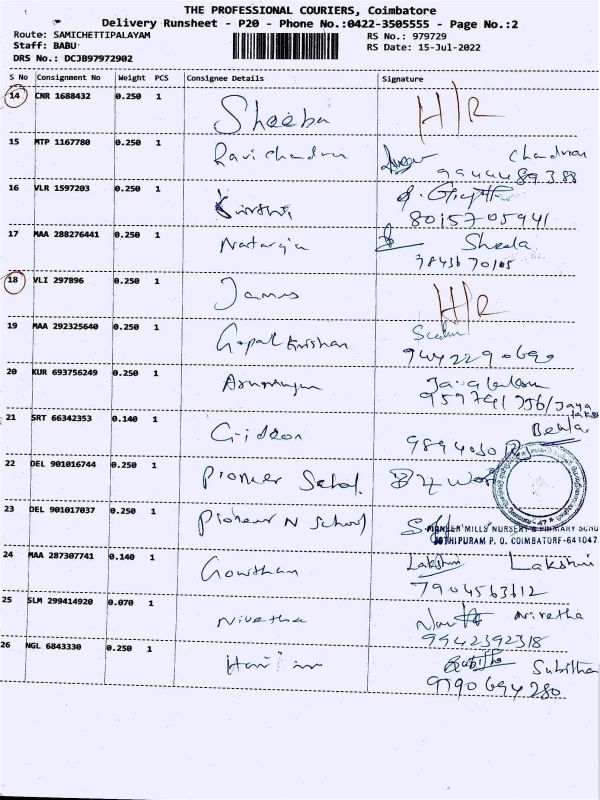 THE PROFESSIONAL COURIERS, Coimbatore
Delivery Runsheet - P20 - Phone No.:0422-3505555 - Page No.:2
Route: SAMICHETTIPALAYAM RS No.: 979729
Staff: BABU RS Date: 15-Jul-2022
DRS No.: DCJB97972902
S No Consignment No Weight PCS Consignee Details Signature
14 CNR 1688432 0.250 1 Sheeba H/R
15 MTP 1167780 0.250 1 Ravichandran Chandran
9944489388
16 VLR 1597203 0.250 1
8015705941
17 MAA 288276441 0.250 1 Nataraja Sheela
18 VLI 297896 0.250 1 James H/R
19 MAA 292325640 0.250 1 Gopalkrishan
9442290690
20 KUR 693756249 0.250 1
21 SRT 66342353 0.140 1 Gideon
22 DEL 901016744 0.250 1 Pioneer School
23 DEL 901017037 0.250 1 Pioneer N School
PIONEER MILLS NURSERY & PRIMARY SCHO
JOTHIPURAM P. O. COIMBATORE-641047
24 MAA 287307741 0.140 1 Gowtham Lakshmi Lakshmi
7904563612
25 SLM 299414920 0.070 1 Nivetha Nivetha
9942392318
26 NGL 6843330 0.250 1
9790694280